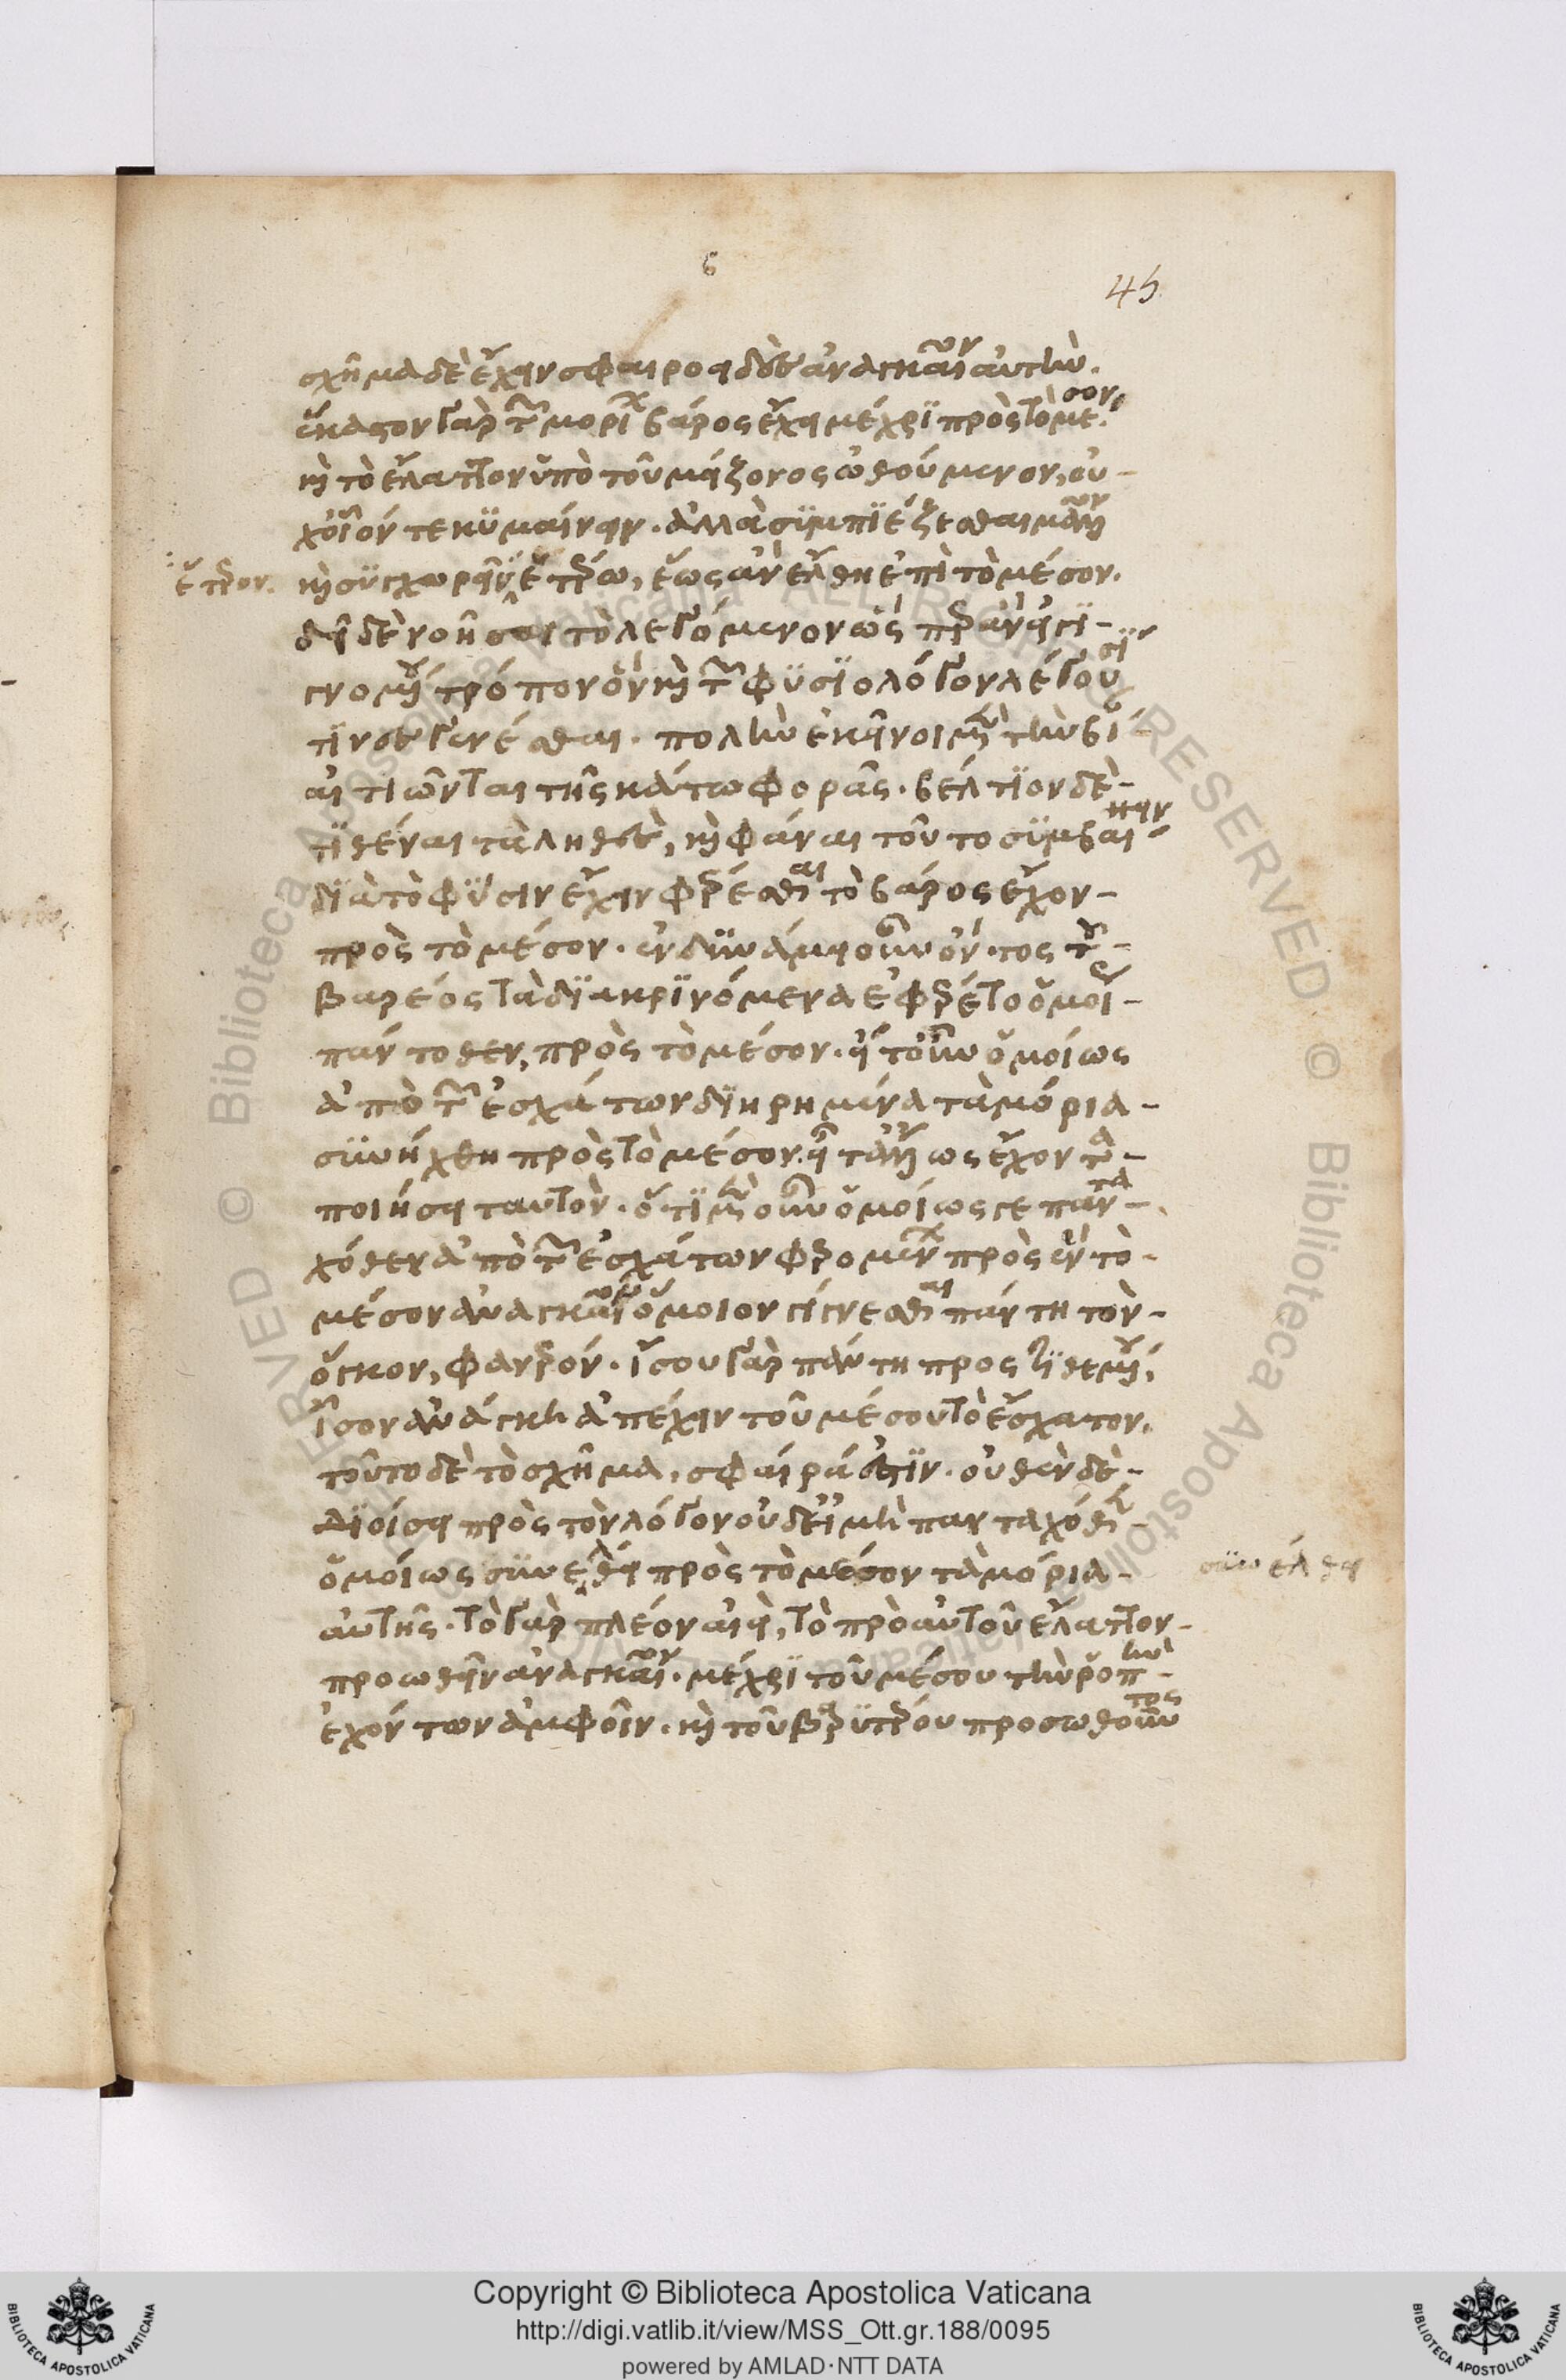 6
45
σχῆμα δὲ ἔχειν σφαιροειδὲς ἀναγκαῖον αὐτὴν.
ἕκαστον γὰρ τῶν μορίων βάρος ἔχει μέχρι πρὸς τὸ μέσον,
καὶ τὸ ἔλαττον ὑπὸ τοῦ μείζονος ὠθούμενον, οὐ-
χ' οἷόν τε κυμαίνειν. ἀλλὰ συμπιέζεσθαι μᾶλλον
ἕτερον. καὶ συγχωρεῖν ἕτερον ἑτέρω, ἕως ἂν ἔλθη ἐπὶ τὸ μέσον.
δεῖ δὲ νοῆσαι τὸ λεγόμενον ὡς περ ἂν εἰ γι-
γνομένης τρόπον ὃν καὶ τῶν φυσιολόγων λέγουσί
τινες γενέσθαι. πλὴν ἐκεῖνοι μὲν τὴν βί-
αι τιῶνται τῆς κάτω φορᾶς. βέλτιον δὲ-
τιθέναι τἀληθὲς, καὶ φάναι τοῦτο συμβαίνειν
διὰ τὸ φύσιν ἔχειν φέρεσθαι τὸ βάρος ἔχον-
πρὸς τὸ μέσον. ἐν δυνάμει οὖν ὄντος τοῦ-
βαρέος τὰ διακρινόμενα ἐφέρετο ὁμοί-
πάντοθεν, πρὸς τὸ μέσον. εἴ τ' οὖν ὁμοίως
ἀπὸ τῶν ἐσχάτων διηρημένα τὰ μόρια-
συνήχθη πρὸς τὸ μέσον. εἴτ' ἄλλως ἔχοντα-
ποιήσει ταυτὸν. ὅτι μὲν οὖν ὁμοίως γε παντα-
χόθεν ἀπὸ τῶν ἐσχάτων φερομένων πρὸς ἓν τὸ-
μέσον ἀναγκαῖον ὅμοιον γίγνεσθαι πάντη τὸν-
ὄγκον, φανερόν. ἴσου γὰρ πάντη προστιθεμένου,
ἴσον ἀνάγκη ἀπέχειν τοῦ μέσου τὸ ἔσχατον.
τοῦτο δὲ τὸ σχῆμα, σφαίρά ἐστιν. οὐθὲν δὲ-
διοίσει πρὸς τὸν λόγον οὐδ' εἰ μὴ πανταχόθεν-
ὁμοίως συνέθει πρὸς τὸ μέσον τὰ μόρια- συνέλθει
αὐτῆς. τὸ γὰρ πλέον αἰεὶ, τὸ πρὸ αὐτοῦ ἔλαττον-
προωθεῖν ἀναγκαῖον. μέχρι τοῦ μέσου τὴν ῥοπὴν-
ἐχόντων ἀμφοῖν. καὶ τοῦ βαρυτέρου προσωθοῦντος
Copyright © Biblioteca Apostolica Vaticana
http://digi.vatlib.it/view/MSS_Ott.gr.188/0095
powered by AMLAD·NTT DATA